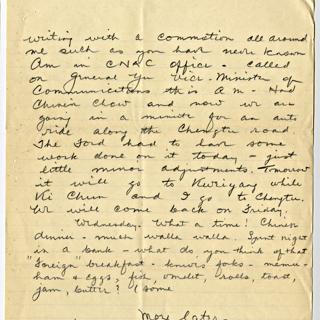 writing with a commotion all around
me such as you have never known
Am in CNAC office - Called
on General Yu Vice-Minister of
Communications this A.M - Had
Chinese Chow and now we are
going in a minute for an auto
ride along the Chengtu road
The Ford had to have some
work done on it today - just
little minor adjustments. Tomorrow
it will go to Kweiyang while
Ki Chun and I go to Chengtu.
We will come back on Friday.
Wednesday. What a time! Chinese
dinner - much walla walla. Spent night
in a bank - what do you think of that
"Foreign" breakfast - knives forks - menu -
ham & eggs, fish, omelet, rolls, toast,
jam, butter? some
More later -